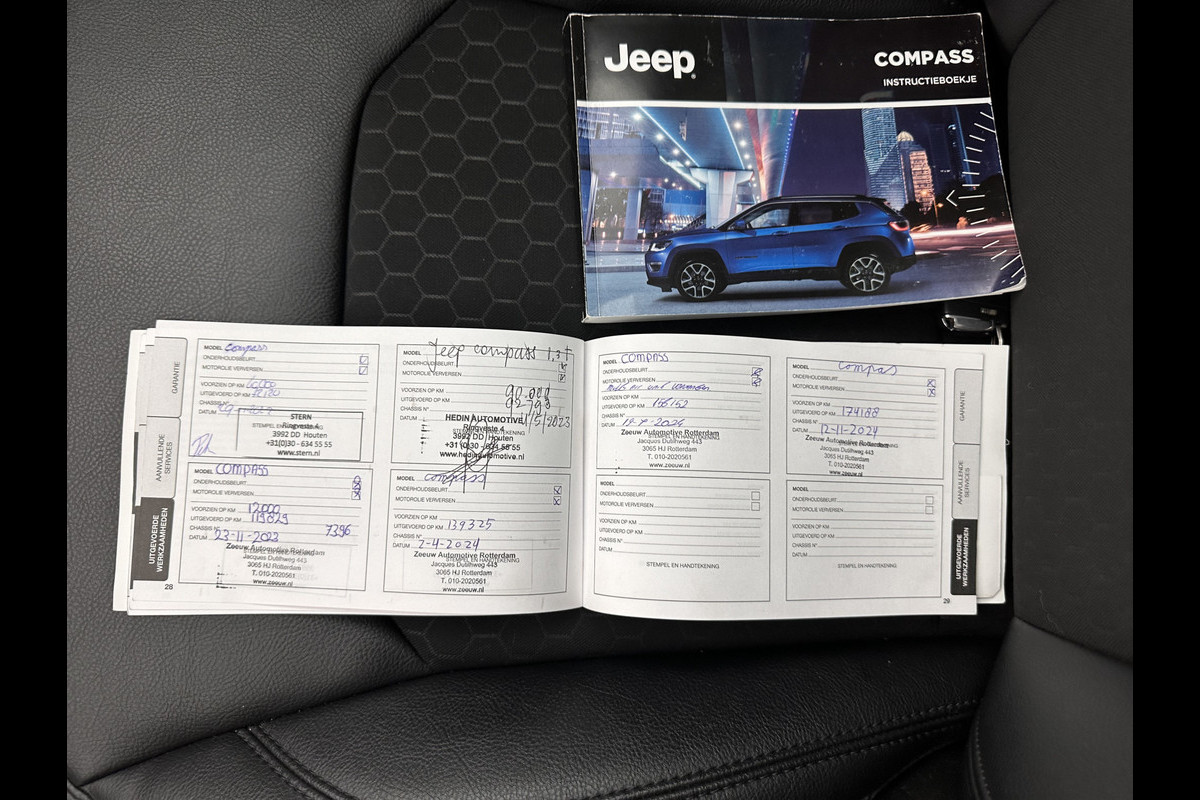 Jeep
COMPASS
INSTRUCTIEBOEKJE
GARANTIE
AANVULLENDE SERVICES
UITGEVOERDE WERKZAAMHEDEN
28
MODEL Compass
ONDERHOUDSBEURT
MOTOROLIE VERVERSEN
VOORZIEN OP KM
UITGEVOERD OP KM
CHASSIS N°
DATUM
STERN
Ringveste 4
3992 DD Houten
+31(0)30 - 634 55 55
www.stern.nl
MODEL Jeep compass 1,3t
ONDERHOUDSBEURT
MOTOROLIE VERVERSEN
VOORZIEN OP KM 90.000
UITGEVOERD OP KM 92-793
CHASSIS N°
DATUM /5/2023
HEDIN AUTOMOTIVE
Ringveste 4
3992 DD Houten
+31 (0)30 - 634 55 55
www.hedinautomotive.nl
MODEL COMPASS
ONDERHOUDSBEURT
MOTOROLIE VERVERSEN
VOORZIEN OP KM 12000
UITGEVOERD OP KM 119829
CHASSIS N° 7396
DATUM 23-11-2023
STEMPEL EN HANDTEKENING
Zeeuw Automotive Rotterdam
Jacques Dutilhweg 443
3065 HJ Rotterdam
T. 010-2020561
www.zeeuw.nl
MODEL compass
ONDERHOUDSBEURT
MOTOROLIE VERVERSEN
VOORZIEN OP KM
UITGEVOERD OP KM 139325
CHASSIS N°
DATUM 2-4-2024
STEMPEL EN HANDTEKENING
Zeeuw Automotive Rotterdam
Jacques Dutilhweg 443
3065 HJ Rotterdam
T. 010-2020561
www.zeeuw.nl
MODEL COMPASS
ONDERHOUDSBEURT
MOTOROLIE VERVERSEN
VOORZIEN OP KM
UITGEVOERD OP KM 156152
CHASSIS N°
DATUM
STEMPEL EN HANDTEKENING
Zeeuw Automotive Rotterdam
Jacques Dutilhweg 443
3065 HJ Rotterdam
T. 010-2020561
www.zeeuw.nl
MODEL Compas
ONDERHOUDSBEURT
MOTOROLIE VERVERSEN
VOORZIEN OP KM
UITGEVOERD OP KM 174188
CHASSIS N°
DATUM 12-11-2024
STEMPEL EN HANDTEKENING
Zeeuw Automotive Rotterdam
Jacques Dutilhweg 443
3065 HJ Rotterdam
T. 010-2020561
www.zeeuw.nl
MODEL
ONDERHOUDSBEURT
MOTOROLIE VERVERSEN
VOORZIEN OP KM
UITGEVOERD OP KM
CHASSIS N°
DATUM
STEMPEL EN HANDTEKENING
MODEL
ONDERHOUDSBEURT
MOTOROLIE VERVERSEN
VOORZIEN OP KM
UITGEVOERD OP KM
CHASSIS N°
DATUM
STEMPEL EN HANDTEKENING
GARANTIE
AANVULLENDE SERVICES
UITGEVOERDE WERKZAAMHEDEN
29